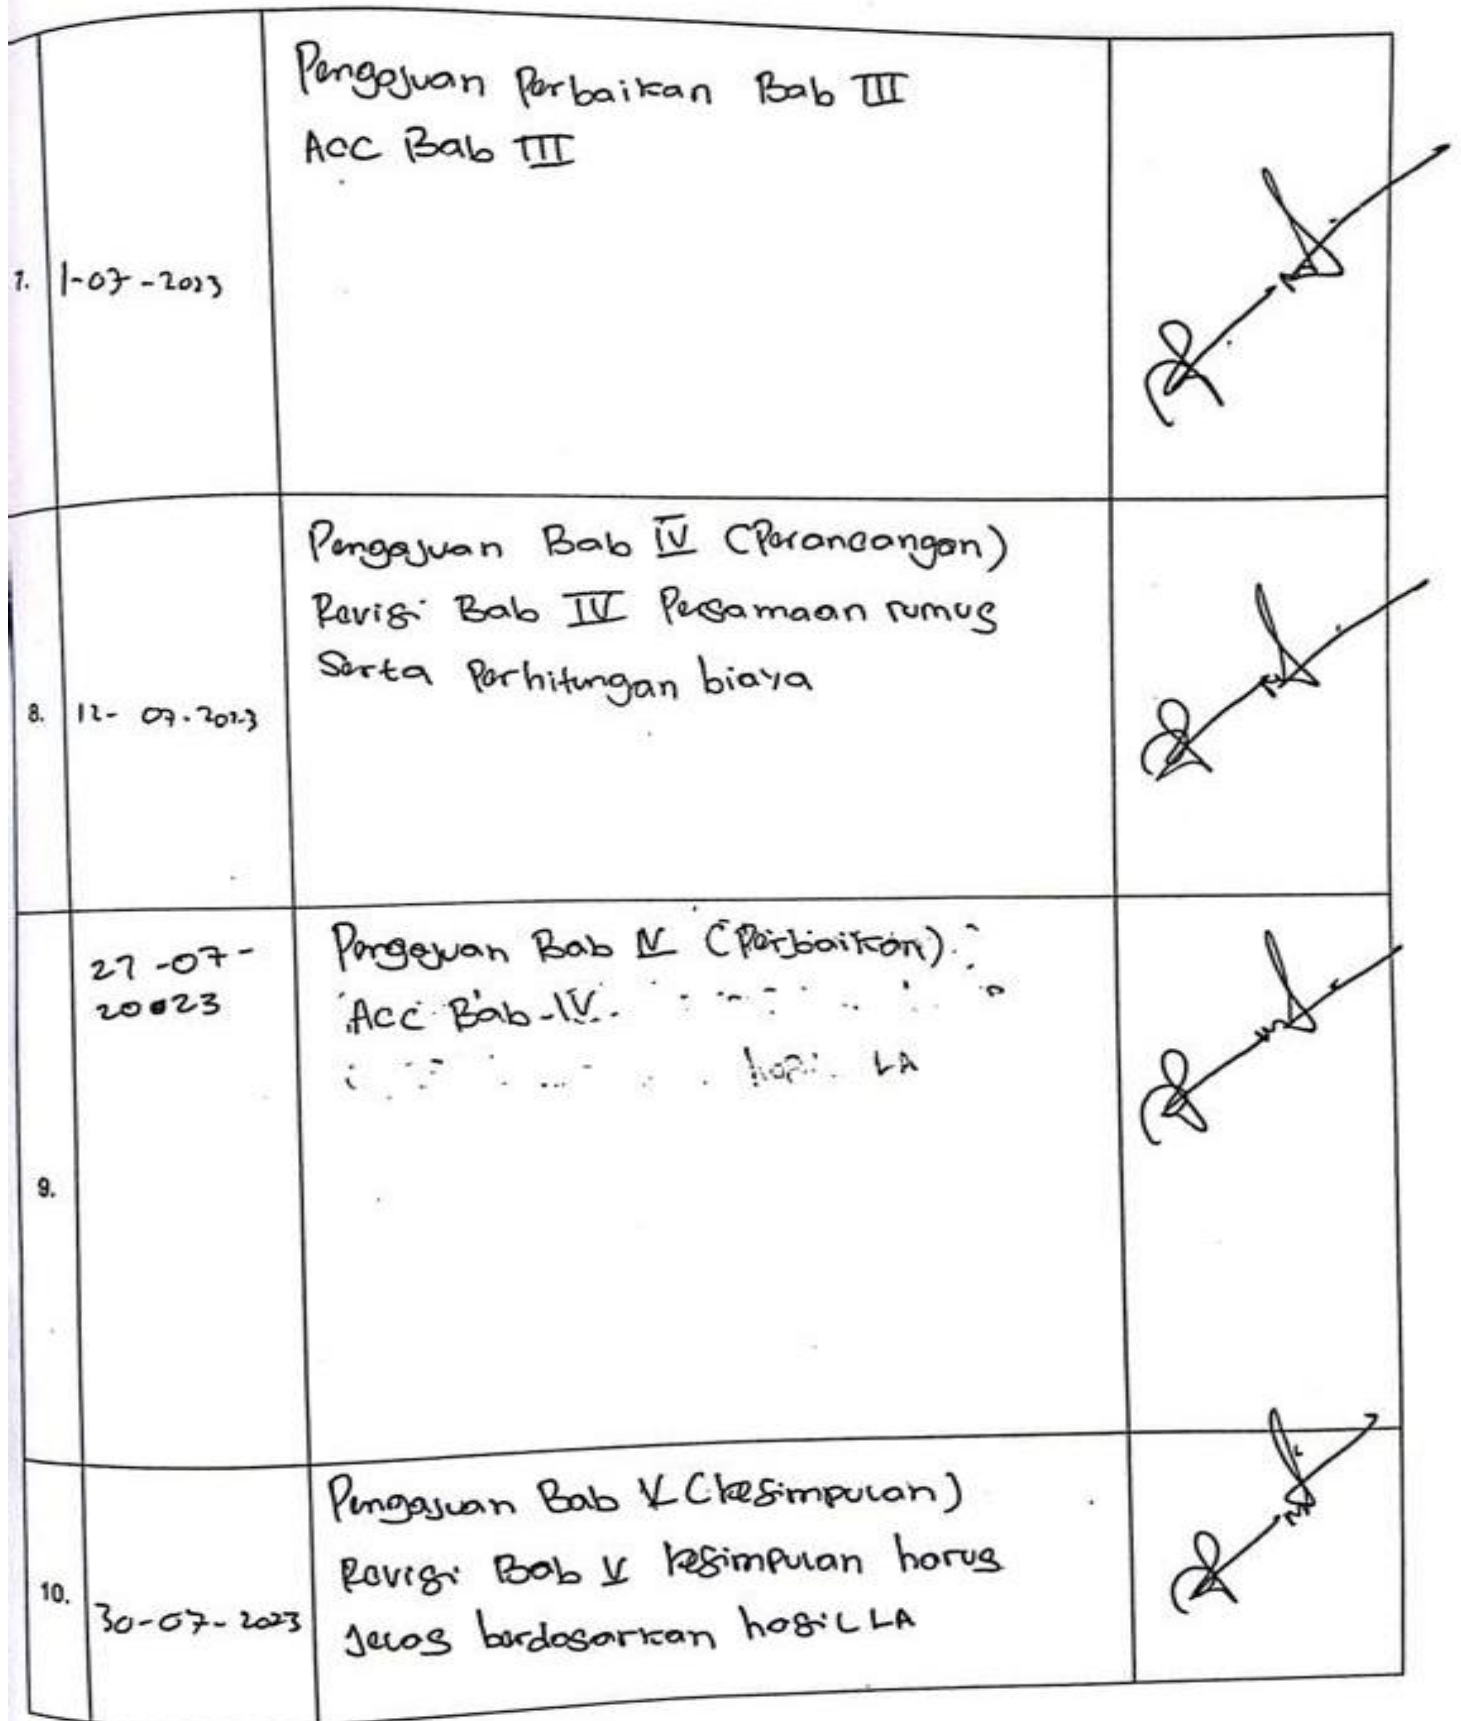 7.
1-07-2023
Pengajuan Perbaikan Bab III
ACC Bab III
8.
12-07-2023
Pengajuan Bab IV (Perancangan)
Revisi Bab IV Persamaan rumus
Serta Perhitungan biaya
9.
27-07-
20023
Pengajuan Bab IV (Perbaikan)
Acc Bab IV
LA
10.
30-07-2023
Pengajuan Bab V (kesimpulan)
Revisi Bab V kesimpulan harus
Jelas berdasarkan hasil LA